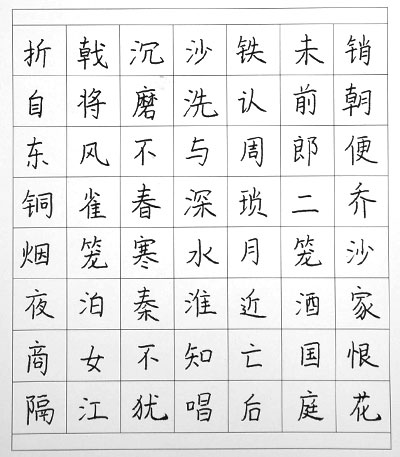 折戟沉沙铁未销
自将磨洗认前朝
东风不与周郎便
铜雀春深琐二乔
烟笼寒水月笼沙
夜泊秦淮近酒家
商女不知亡国恨
隔江犹唱后庭花